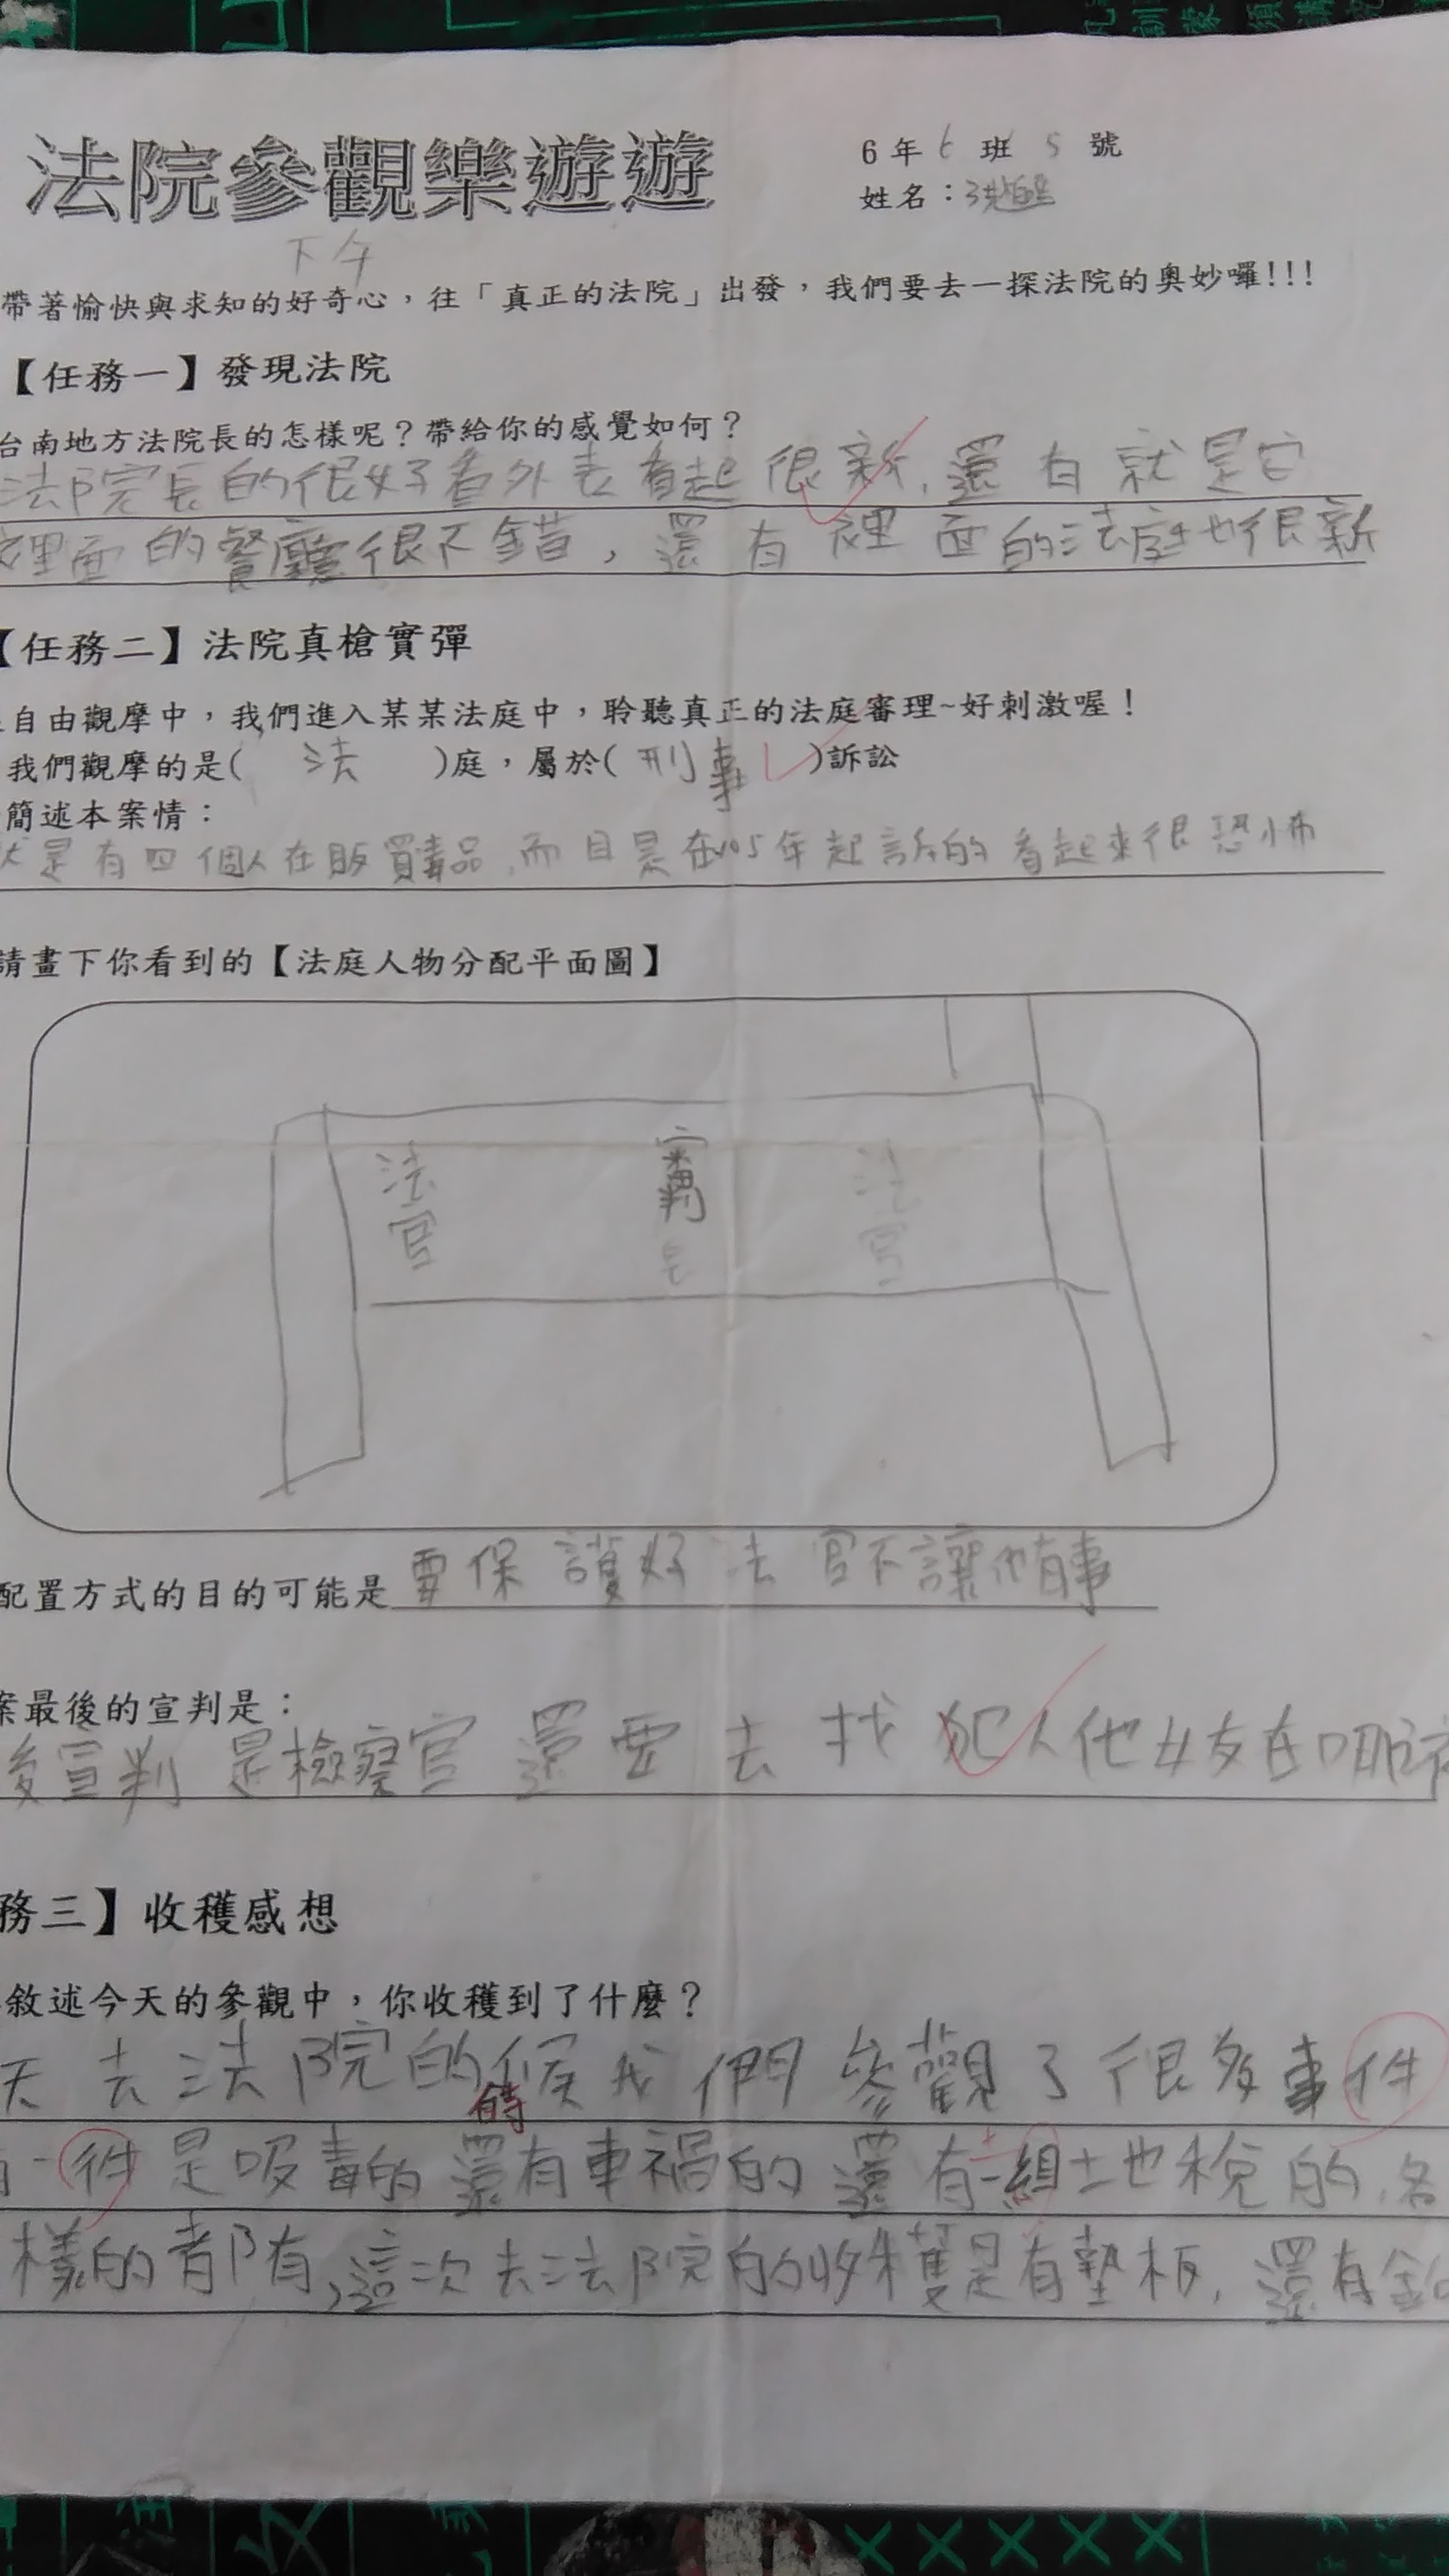 法院參觀樂遊遊
6年 6 班 5 號
姓名：
下午
帶著愉快與求知的好奇心，往「真正的法院」出發，我們要去一探法院的奧妙囉!!!
【任務一】發現法院
台南地方法院長的怎樣呢？帶給你的感覺如何？
法院長的很好看外表看起很新,還有就是它
裡面的餐廳很不錯,還有裡面的法庭也很新
【任務二】法院真槍實彈
自由觀摩中，我們進入某某法庭中，聆聽真正的法庭審理~好刺激喔！
我們觀摩的是( 法 )庭，屬於( 刑事 )訴訟
簡述本案情：
是有四個人在販買毒品,而且是在105年起訴的看起來很恐怖
請畫下你看到的【法庭人物分配平面圖】
法官 審判長 法官
配置方式的目的可能是要保護好法官不讓他有事
案最後的宣判是：
後宣判是檢察官還要去找犯人他女友在哪裡
務三】收穫感想
敘述今天的參觀中，你收穫到了什麼？
天去法院的時候我們參觀了很多事件
有一件是吸毒的還有車禍的還有一組土地稅的,各
樣的都有,這次去法院的收穫是有墊板,還有